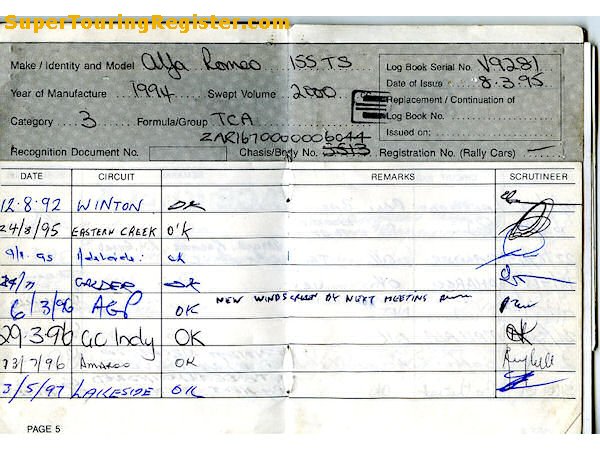 SuperTouringRegister.com
Make / Identity and Model Alfa Romeo 155 TS
Log Book Serial No. V9281
Date of Issue 8.3.95
Year of Manufacture 1994 Swept Volume 2000
Replacement / Continuation of
Log Book No.
Category 3 Formula/Group TCA
Issued on:
ZAR16700000006044
Recognition Document No. Chasis/Body No. 5513 Registration No. (Rally Cars) —
DATE CIRCUIT REMARKS SCRUTINEER
12.8.92 WINTON OK
24/8/95 EASTERN CREEK O'K
95 Adelaide: OK
CALDER OK
6/3/96 AGP OK NEW WINDSCREEN BY NEXT MEETING
29.3.96 GC Indy OK
13/7/96 AMAROO OK
3/5/97 LAKESIDE OK
PAGE 5